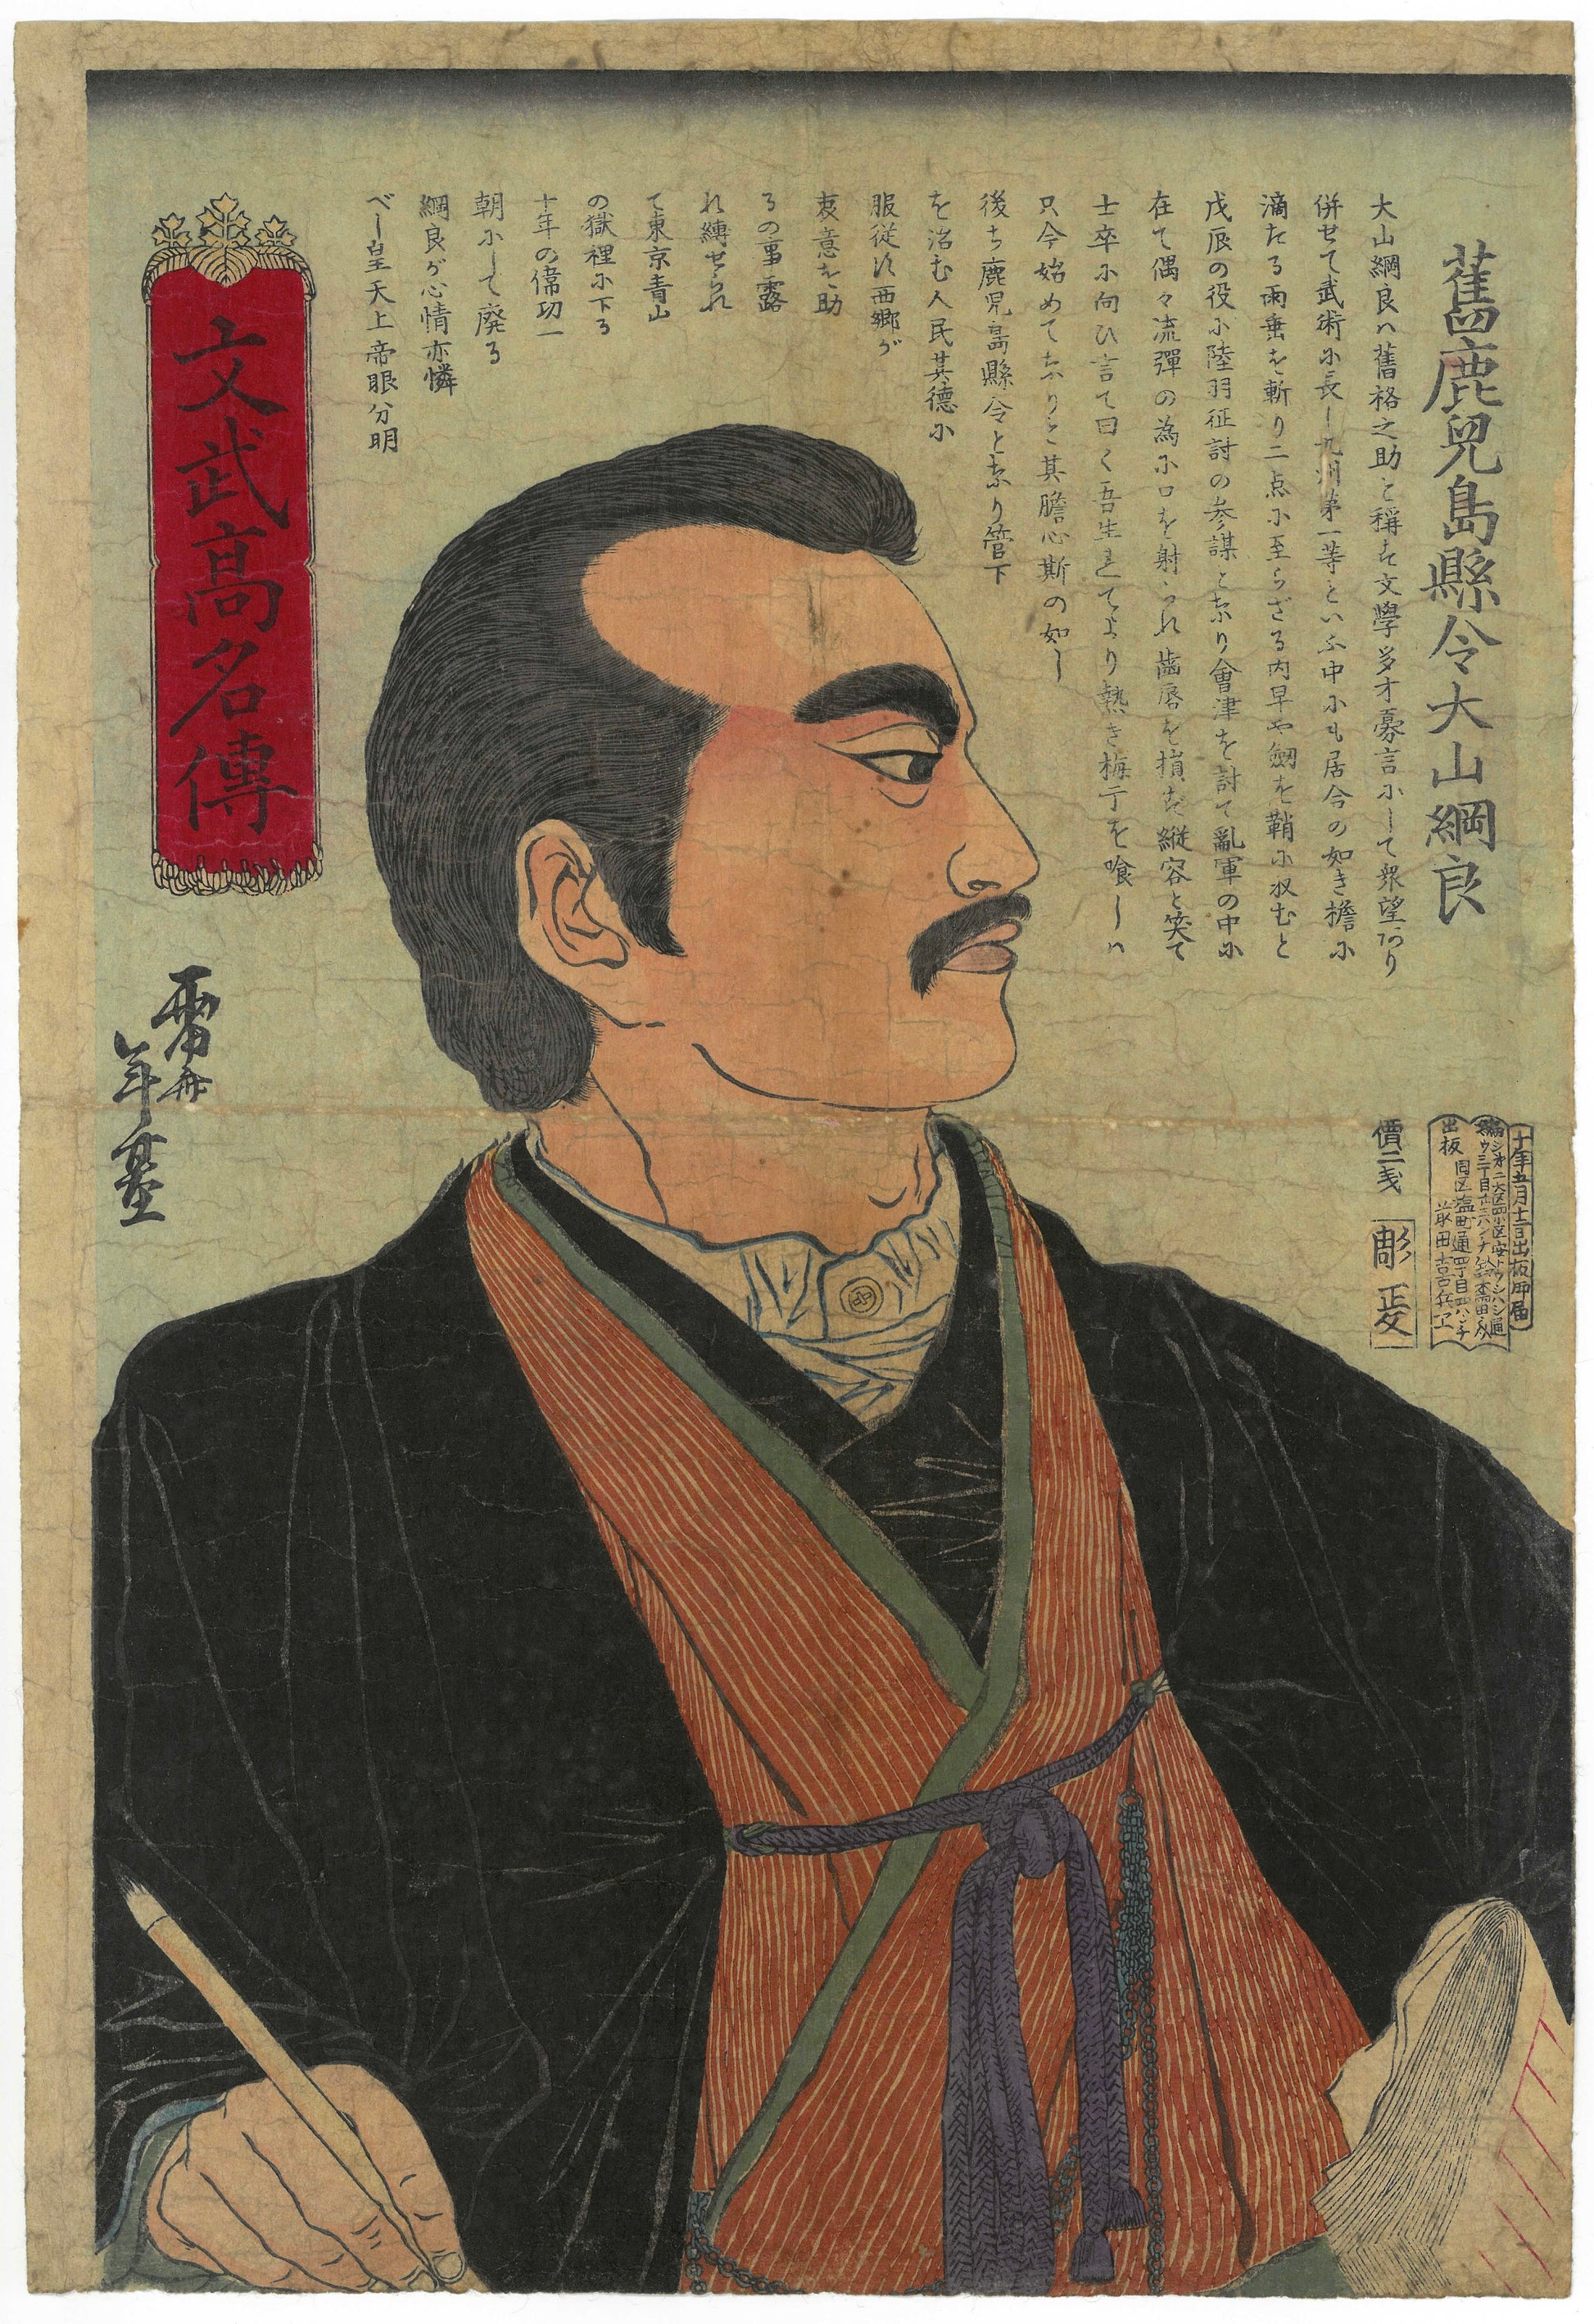 舊鹿児島縣令大山綱良
大山綱良ハ舊格之助と稱す文學多才寡言にして衆望あり
併せて武術に長し九州第一等といふ中にも居合の如き檐に
滴たる雨垂を斬り二点に至らざる内早や劔を鞘に収むと
戊辰の役に陸羽征討の参謀となり會津を討て亂軍の中に
在て偶々流彈の為に口を射られ齒唇を損す縦容と笑て
士卒に向ひ言て曰く吾生れてより熱き梅干を喰しハ
只今始めてなりと其膽心斯の如し
後ち鹿児島縣令となり管下
を治む人民其徳に
服従す西郷が
衷意を助
るの事露
れ縛せられ
て東京青山
の獄裡に下る
十年の偉功一
朝にして廃る
綱良が心情亦憐
べし皇天上帝眼分明
文武高名傳
年基
十年五月十二日出板御届
出板
價二戋
彫